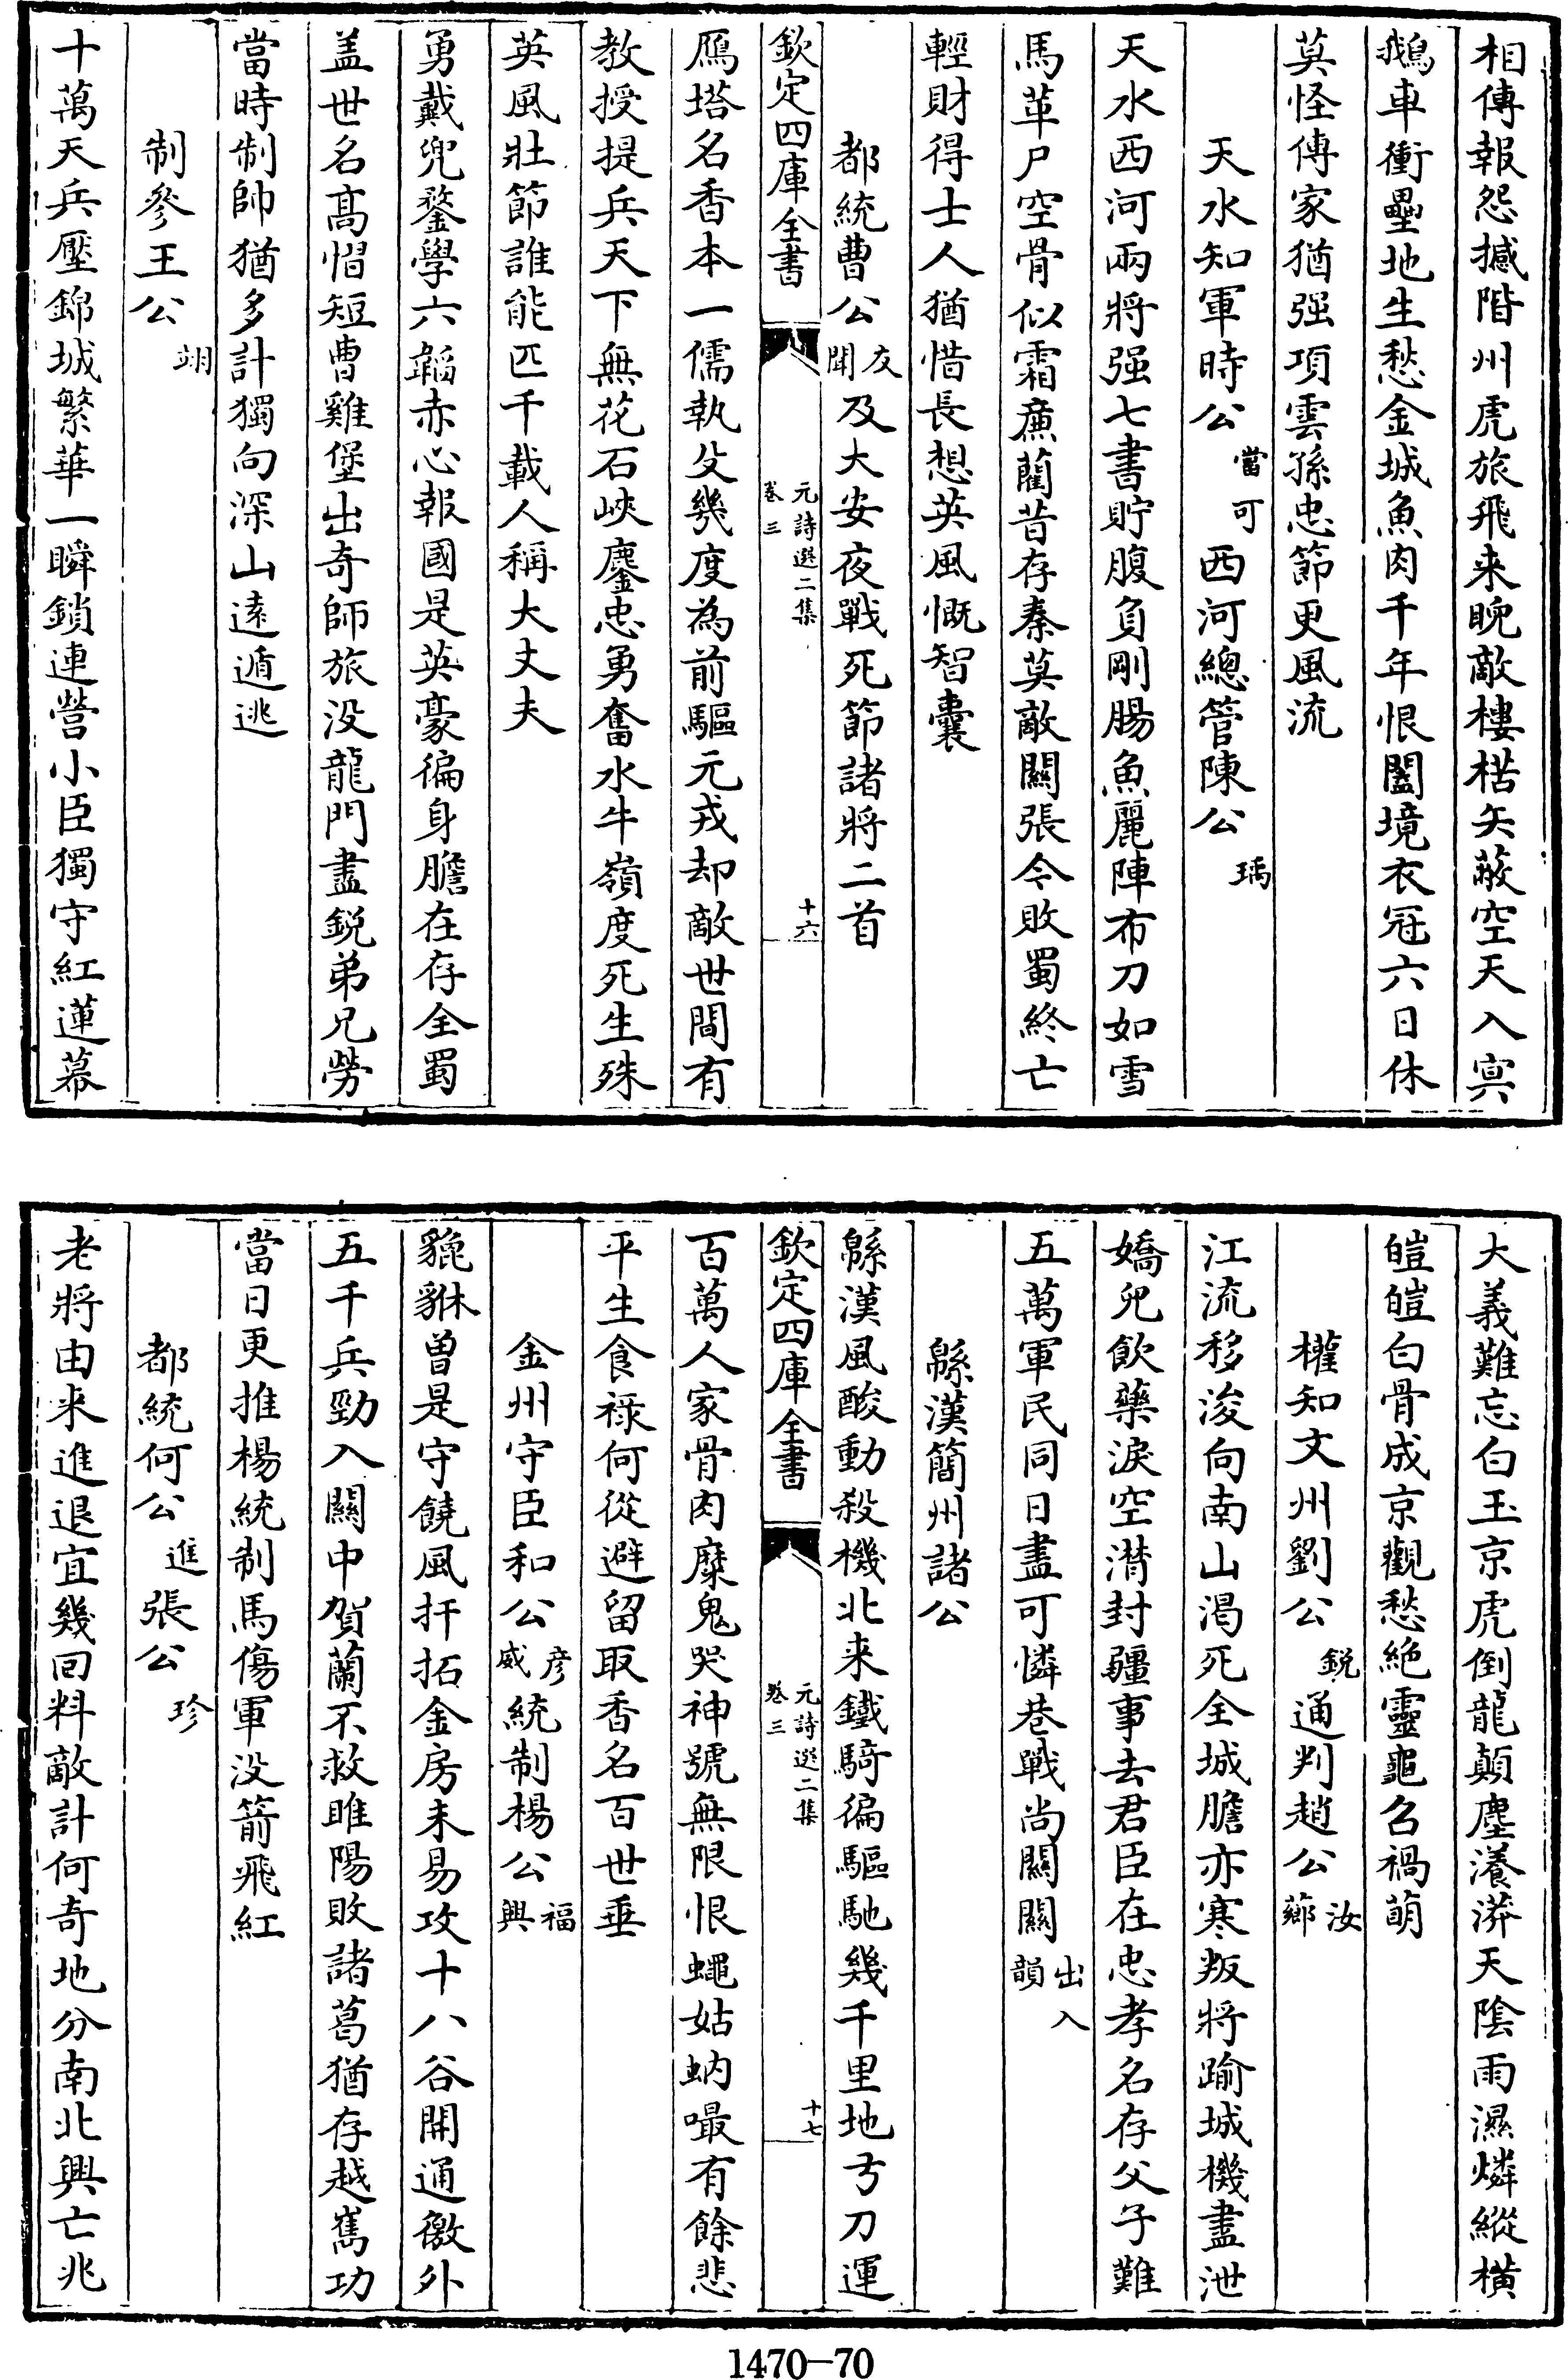 相傳報怨撼階州虎旅飛来睌敵樓楛矢蔽空天入㝠
鵝車衝壘地生愁金城魚肉千年恨闔境衣冠六日休
莫怪傳家猶强項雲孫忠節更風流
天水知軍時公當可西河總管陳公瑀
天水西河兩將强七書貯腹負剛腸魚麗陣布刀如雪
馬革尸空骨似霜亷藺昔存秦莫敵關張今敗蜀終亡
輕財得士人猶惜長想英風慨智囊
都統曹公友聞及大安夜戰死節諸將二首
欽定四庫全書
元詩選二集
卷三
十六
鴈塔名香本一儒執殳幾度為前驅元戎却敵世間有
教授提兵天下無花石峽鏖忠勇奮水牛嶺度死生殊
英風壯節誰能匹千載人稱大丈夫
勇戴兜鍪學六韜赤心報國是英豪徧身膽在存全蜀
盖世名髙惜短曹雞堡出奇師旅没龍門盡鋭弟兄勞
當時制帥猶多計獨向深山逺遁逃
制參王公翊
十萬天兵壓錦城繁華一瞬鎖連營小臣獨守紅蓮幕
大義難忘白玉京虎倒龍顛塵瀁漭天陰雨濕燐縱横
皚皚白骨成京觀愁絶靈龜召禍萌
權知文州劉公鋭通判趙公汝薌
江流移浚向南山渇死全城膽亦寒叛將踰城機盡泄
嬌兒飲藥淚空潸封疆事去君臣在忠孝名存父子難
五萬軍民同日盡可憐巷戰尚關關出入韻
緜漢簡州諸公
緜漢風酸動殺機北来鐵騎徧驅馳幾千里地亐刀運
欽定四庫全書
元詩選二集
卷三
十七
百萬人家骨肉糜鬼哭神號無限恨蠅姑蚋嘬有餘悲
平生食禄何從避留取香名百世垂
金州守臣和公彦威統制楊公福興
貔貅曽是守饒風扞拓金房未易攻十八谷開通徼外
五千兵勁入關中賀蘭不救睢陽敗諸葛猶存越嶲功
當日更推楊統制馬傷軍没箭飛紅
都統何公進張公珍
老將由来進退宜幾回料敵計何奇地分南北興亡兆
1470—70